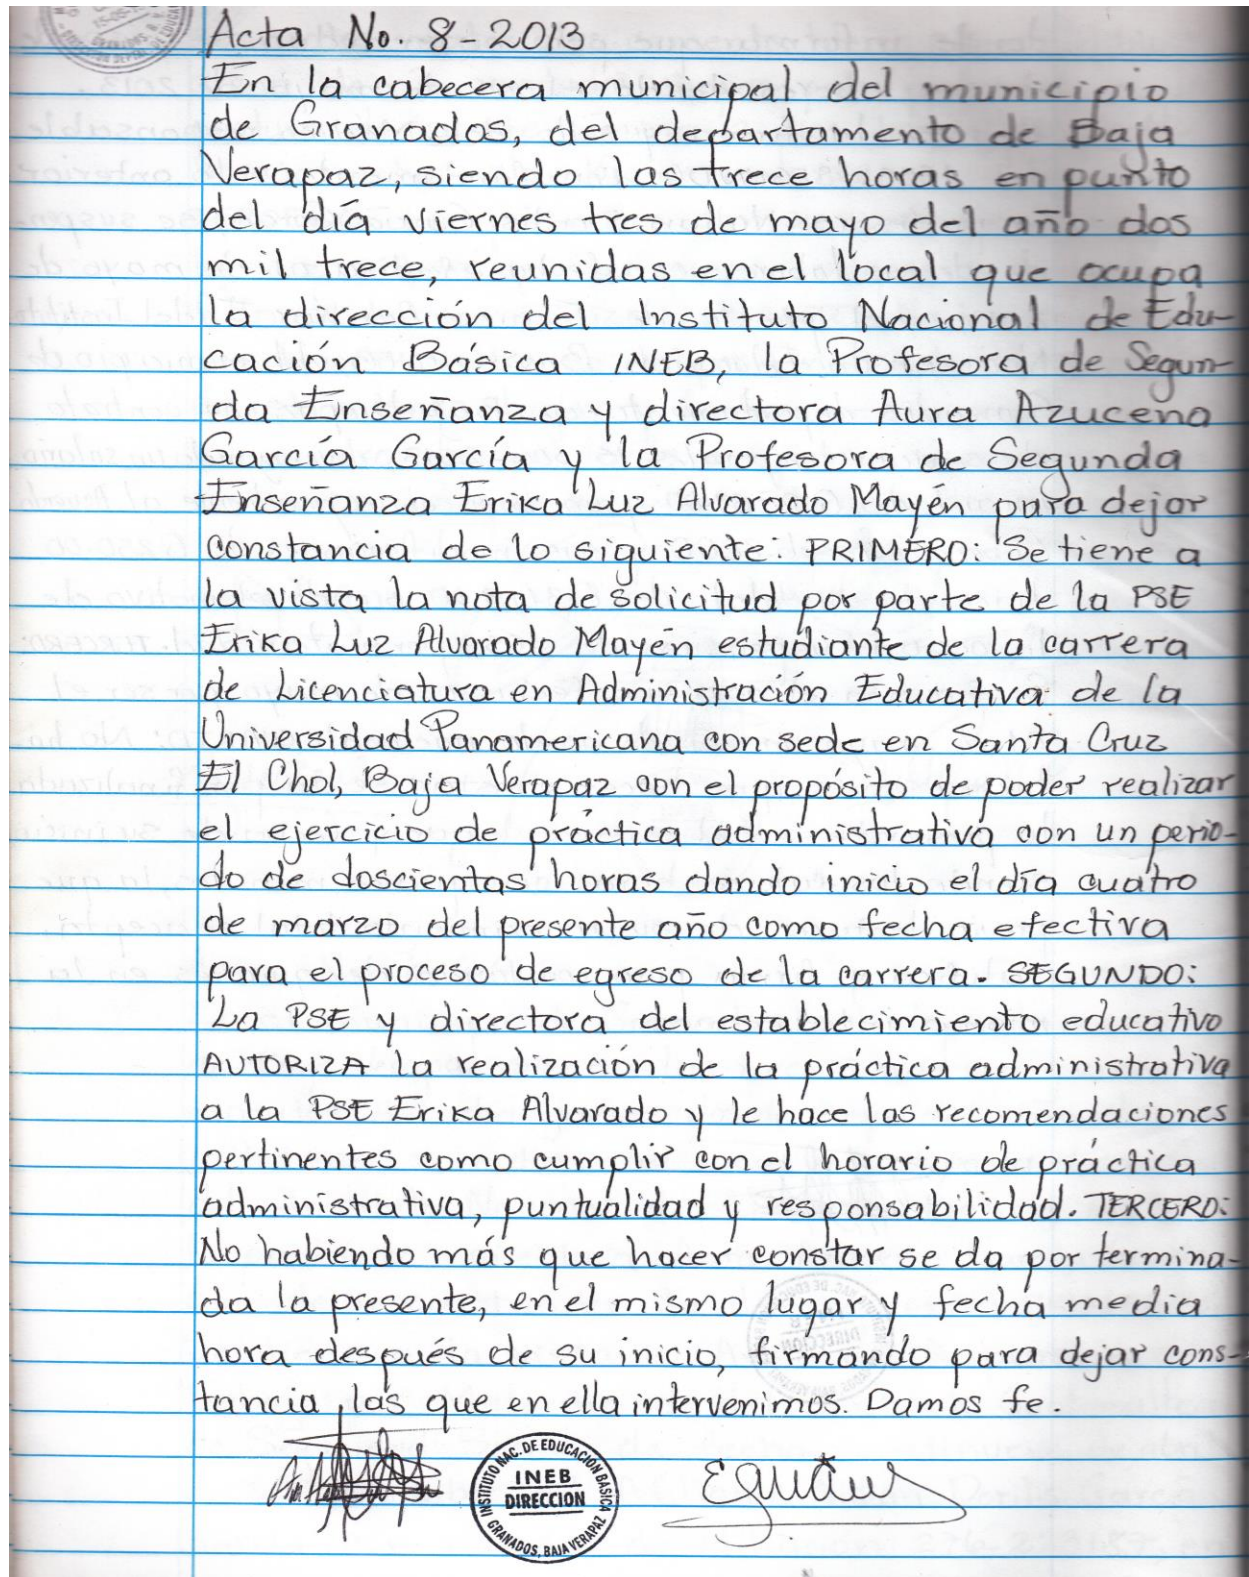 Acta No. 8-2013
En la cabecera municipal del municipio
de Granados, del departamento de Baja
Verapaz, siendo las trece horas en punto
del día viernes tres de mayo del año dos
mil trece, reunidas en el local que ocupa
la dirección del Instituto Nacional de Edu-
cación Básica INEB, la Profesora de Segun-
da Enseñanza y directora Aura Azucena
García García y la Profesora de Segunda
Enseñanza Erika Luz Alvarado Mayén para dejar
constancia de lo siguiente: PRIMERO: Se tiene a
la vista la nota de solicitud por parte de la PSE
Erika Luz Alvarado Mayén estudiante de la carrera
de Licenciatura en Administración Educativa de la
Universidad Panamericana con sede en Santa Cruz
El Chol, Baja Verapaz con el propósito de poder realizar
el ejercicio de práctica administrativa con un perio-
do de doscientas horas dando inicio el día cuatro
de marzo del presente año como fecha efectiva
para el proceso de egreso de la carrera. SEGUNDO:
La PSE y directora del establecimiento educativo
AUTORIZA la realización de la práctica administrativa
a la PSE Erika Alvarado y le hace las recomendaciones
pertinentes como cumplir con el horario de práctica
administrativa, puntualidad y responsabilidad. TERCERO:
No habiendo más que hacer constar se da por termina-
da la presente, en el mismo lugar y fecha media
hora después de su inicio, firmando para dejar cons-
tancia las que en ella intervenimos. Damos fe.
INSTITUTO NAC. DE EDUCACION BASICA
INEB
DIRECCION
GRANADOS, BAJA VERAPAZ